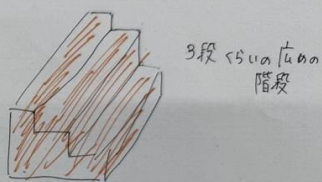 3段くらいの広めの
階段